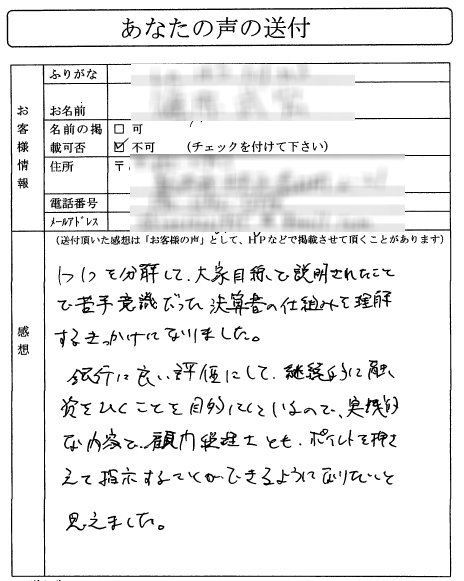 あなたの声の送付
お客様情報
ふりがな
お名前
名前の掲載可否
□ 可
☑ 不可 (チェックを付けて下さい)
住所
〒
電話番号
メールアドレス
感想
(送付頂いた感想は「お客様の声」として、HPなどで掲載させて頂くことがあります)
1つ1つを分解して、大家目線で説明されたこと
で苦手意識だった決算書の仕組みを理解
するきっかけになりました。
銀行に良い評価にして、継続的に融
資をひくことを目的にしているので、実践的
な内容で、顧問税理士とも、ポイントを押さ
えて指示することができるようになりたいと
思えました。